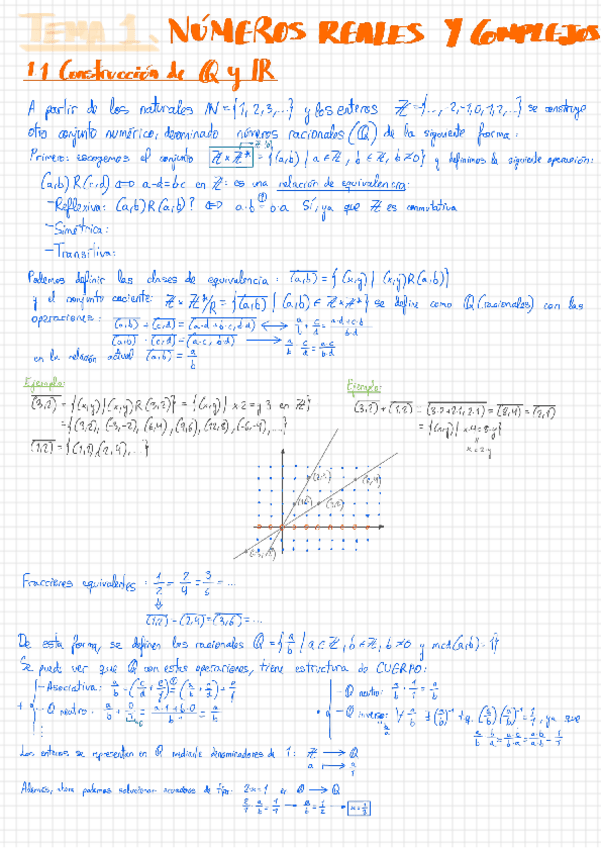 TEMA 1. NÚMEROS REALES Y COMPLEJOS
1.1 Construcción de Q y IR
A partir de los naturales IN = {1,2,3,...} y los enteros Z = {..., -2,-1,0,1,2,...} se construye
otro conjunto numérico, denominado números racionales (Q) de la siguiente forma:
Primero: escogemos el conjunto Z×Z* = {(a,b) | a∈Z, b∈Z, b≠0} y definimos la siguiente operación:
(a,b)R(c,d) ⟺ a·d=b·c en Z: es una relación de equivalencia:
-Reflexiva: (a,b)R(a,b)? ⟺ a·b = b·a Sí, ya que Z es conmutativa
-Simétrica:
-Transitiva:
Podemos definir las clases de equivalencia: (a,b) = {(x,y) | (x,y)R(a,b)}
y el conjunto cociente: Z×Z*/R = {(a,b) | (a,b)∈Z×Z*} se define como Q (racionales) con las
operaciones: (a,b) + (c,d) = (a·d+b·c, b·d) ⟷ a/b + c/d = a·d+c·b/b·d
(a,b) · (c,d) = (a·c, b·d) ⟷ a/b · c/d = a·c/b·d
en la relación actual (a,b) = a/b
Ejemplo:
(3,2) = {(x,y) | (x,y)R(3,2)} = {(x,y) | x·2=y·3 en Z}
= {(3,2), (-3,-2), (6,4), (9,6), (12,8), (-6,-4), ...}
(1,2) = {(1,2), (2,4), ...}
Ejemplo:
(3,2) + (1,2) = (3·2+2·1, 2·2) = (8,4) = (2,1)
= {(x,y) | x·4=8·y}
x=2·y
(-3,-2)
Fracciones equivalentes: 1/2 = 2/4 = 3/6 = ...
(1,2) = (2,4) = (3,6) = ...
De esta forma, se definen los racionales Q = {a/b | a∈Z, b∈Z, b≠0 y mcd(a,b)=1}
Se puede ver que Q con estas operaciones, tiene estructura de CUERPO:
-Asociativa: a/b + (c/d + e/f) = (a/b + c/d) + e/f
+ -Q neutro: a/b + 0/1 = a·1+b·0/b·1 = a/b
-Q neutro: a/b · 1/1 = a/b
· -Q inverso: ∀ a/b ∃ (a/b)⁻¹ t.q. (a/b)(a/b)⁻¹ = 1/1, ya que
a/b · b/a = a·b/b·a = a·b/a·b = 1/1
Los enteros se representan en Q mediante denominadores de 1: Z ⟶ Q
a ⟶ a/1
Además, ahora podemos solucionar ecuaciones de tipo: 2x=1 en Q ⟶ Q
2/1 · a/b = 1/1 ⟶ a/b = 1/2 ⟶ x=1/2